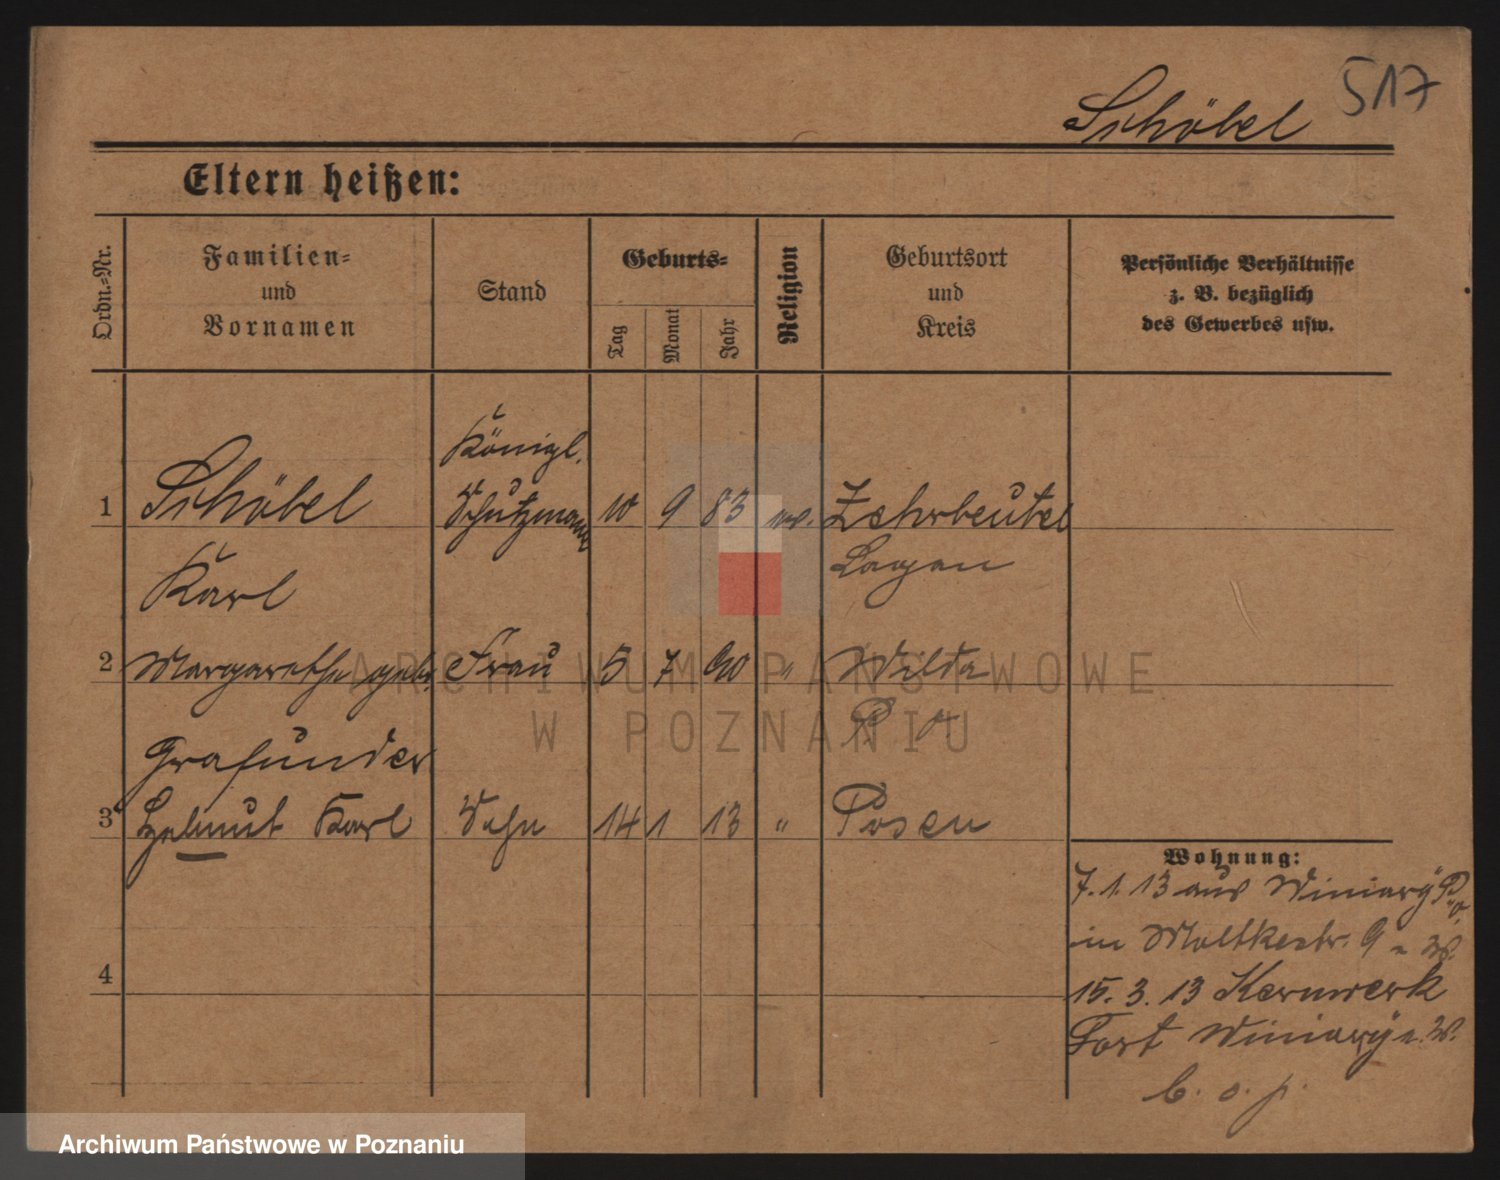 Schöbel 517
Eltern heißen:
Ordn.-Nr.
Familien-
und
Vornamen
Stand
Geburts-
Tag
Monat
Jahr
Religion
Geburtsort
und
Kreis
Persönliche Verhältnisse
z. B. bezüglich
des Gewerbes usw.
Königl.
1 Schöbel Schutzmann 10 9 83 ev. Zehrbeutel
Karl Sagan
2 Margarethe geb. Frau 5 7 90 " Wilda
Grafunder P. O.
3 Helmut Karl Sohn 14 1 13 " Posen
4
Wohnung:
7. 1. 13 aus Winiary P. O.
in Moltkestr. 9
15. 3. 13 Kernwerk
Fort Winiary
b. o. p.
ARCHIWUM PAŃSTWOWE
W POZNANIU
Archiwum Państwowe w Poznaniu